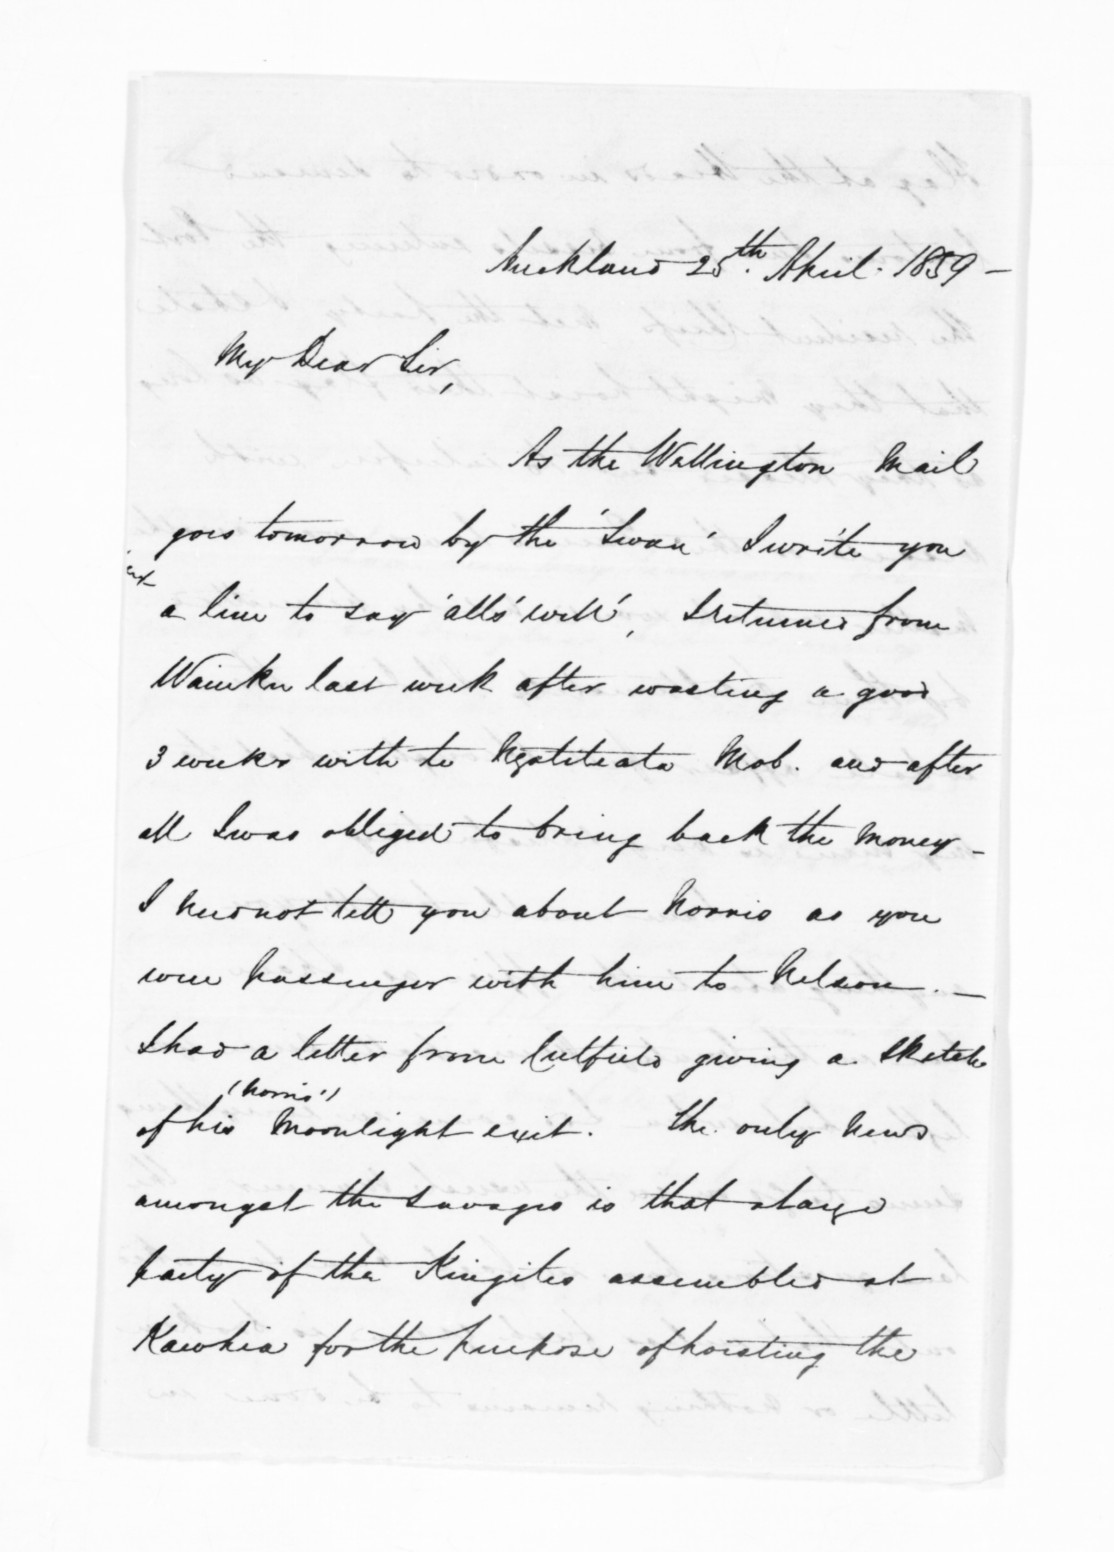 Auckland 25th. April. 1859 -
My Dear Sir,
As the Wellington Mail
goes tomorrow by the 'Swan' I write you
a line to say 'alls' well', I returned from
Waiuku last week after wasting a good
3 weeks with te Ngatiteata Mob. and after
all I was obliged to bring back the money -
I need not tell you about Norris as you
were passenger with him to Nelson. -
I had a letter from Cutfield giving a sketch
(Norris')
of his Moonlight exit. The only news
amongst the savages is that a large
party of the Kingites assembled at
Kawhia for the purpose of hoisting the